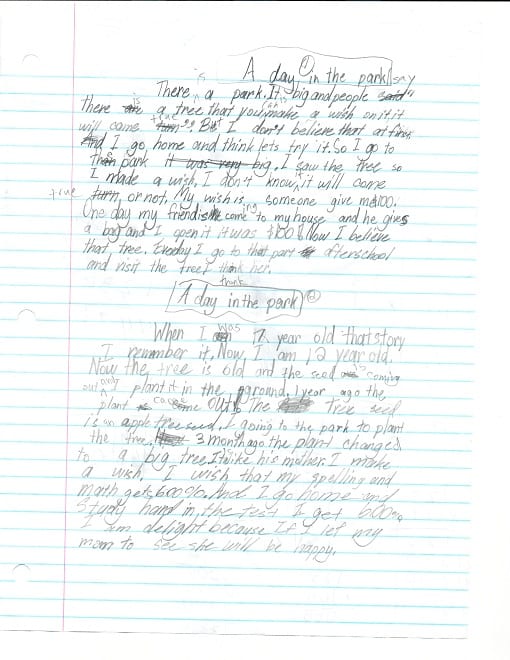 A day in the park ①
There is a park. It big and people say
there is a tree that you can make a wish on it it
will came true". But I don't believe that at first.
And I go home and think lets try it. So I go to
the park. I saw the tree so
I made a wish, I don't know it will come
true, or not. My wish is, someone give me $100.
One day my friend is coming to my house and he gives
a bag and I open it it was $100! Now I believe
that tree. Everyday I go to that park afterschool
and visit the tree I thank her.
think
A day in the park ②
When I was 7 year old that story
I remember it, Now, I am 12 year old.
Now the tree is old and the seed is coming
out and plant it in the ground. 1 year ago the
plant come out. The tree seed
is an apple tree seed. I going to the park to plant
the tree. 3 month ago the plant changed
to a big tree. It like his mother. I make
a wish. I wish that my spelling and
math gets 600%. And I go home and
study hard in, the test I get 600%
I am delight because If I let my
mom to see she will be happy.